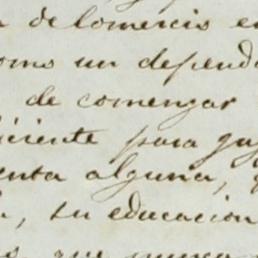 de Comercio en
como un depend
de comenzar
iciente para
enta alguna,
su educacion
que nunca